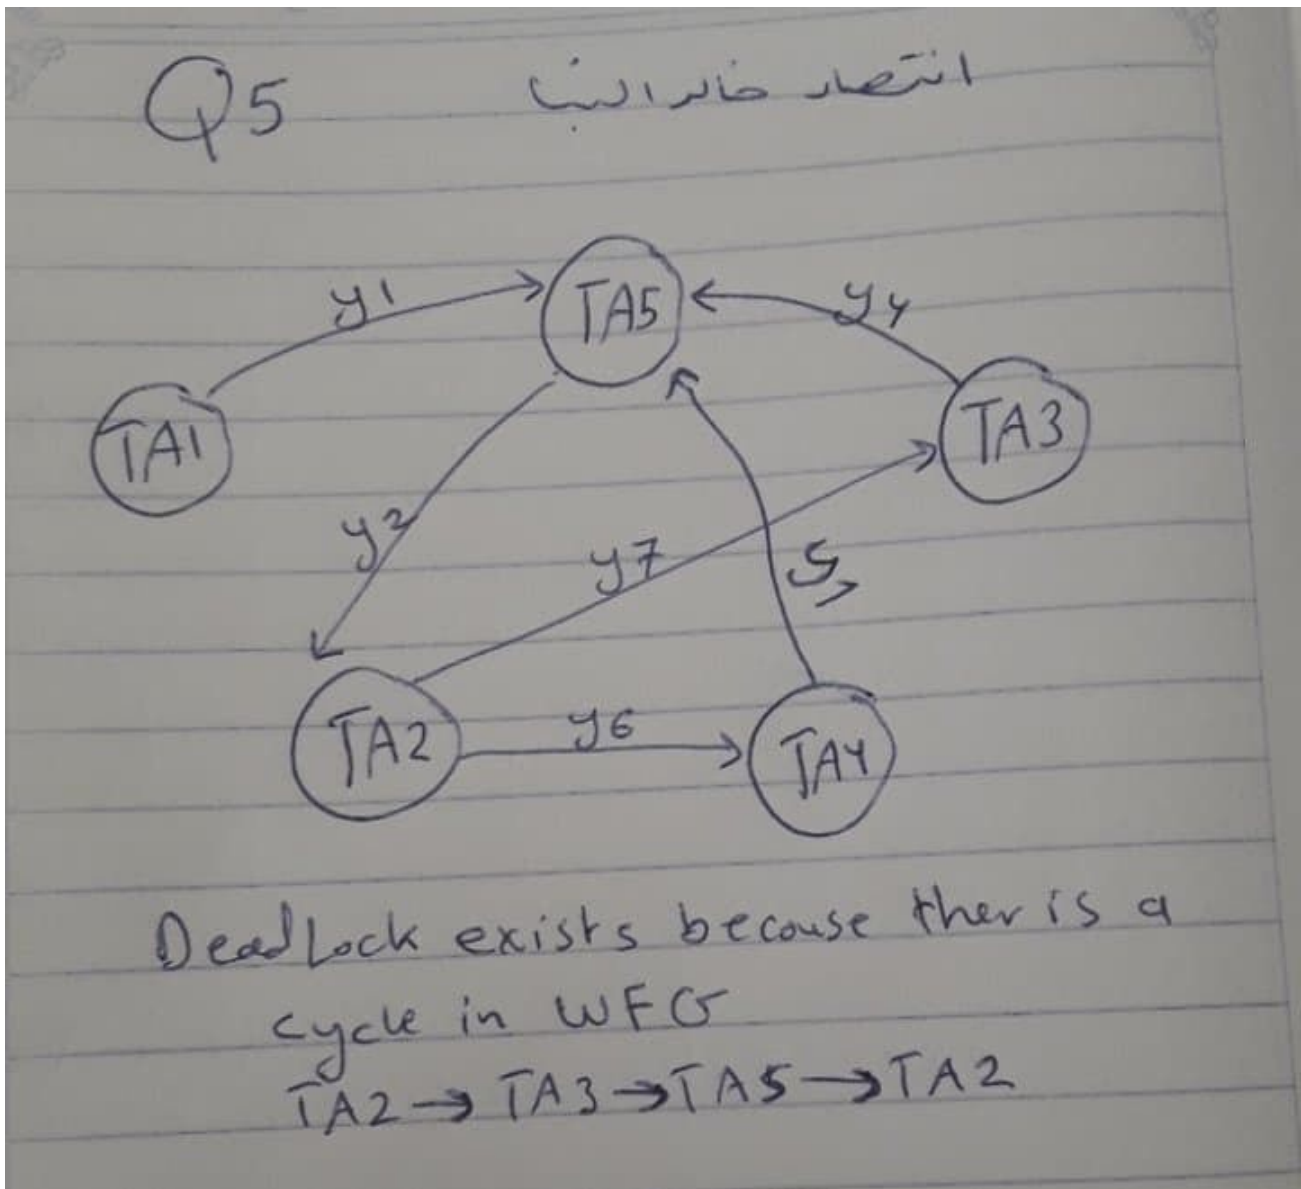 Q5
انتصار خالد البنا
y1
TA5
y4
TA1
TA3
y2
y7
TA2
y6
TA4
DeadLock exists because ther is a
cycle in WFG
TA2 → TA3 → TA5 → TA2